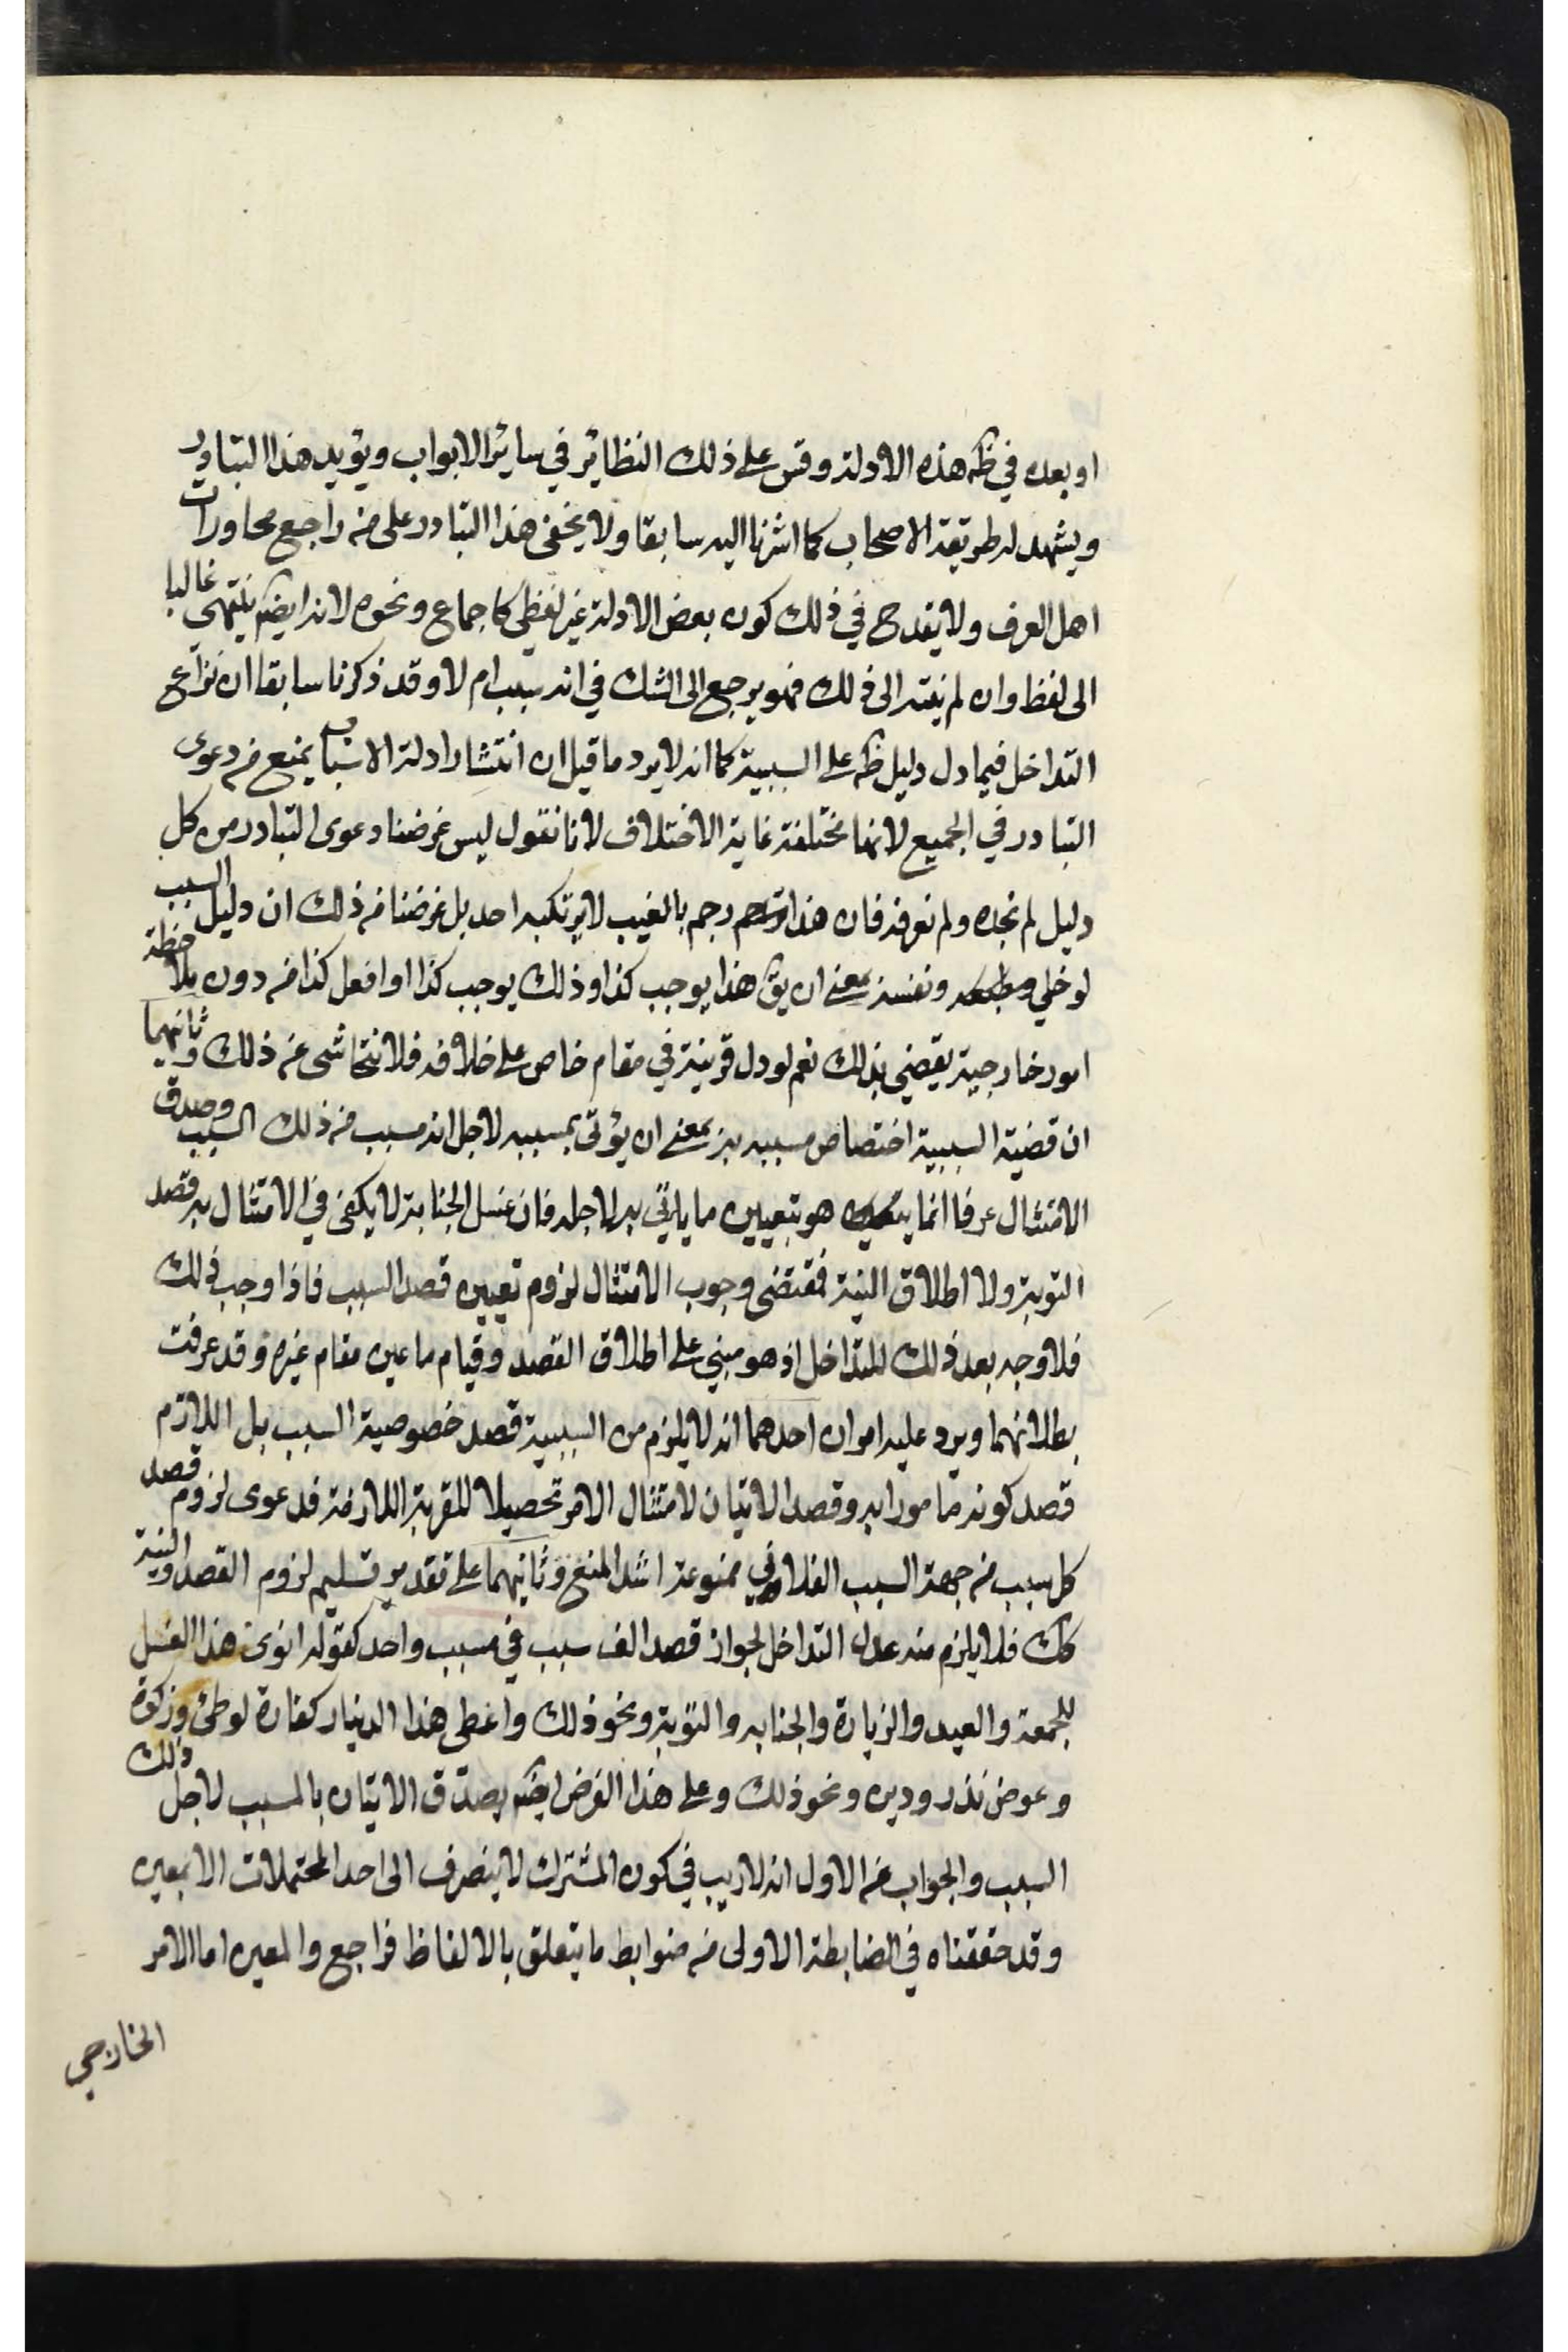 او بعده في ظه هذه الادلة وقس على ذلك النظائر في سائر الابواب ويؤيد هذا التبادر
ويشهد له طريقة الاصحاب كما اشرنا اليه سابقا ولا يخفى هذا التبادر على من راجع محاورات
اهل العرف ولا يقدح في ذلك كون بعض الادلة غير لفظي كاجماع ونحوه لانه ايضا ينتهي غالبا
الى لفظ وان لم ينته الى ذلك فهو يرجع الى الشك في انه سبب ام لا وقد ذكرنا سابقا ان نزاع
التداخل فيما دل دليل ظه على السببية كما انه لا يرد ما قيل ان انتشار ادلة الاسباب يمنع من دعوى
التبادر في الجميع لانها مختلفة غاية الاختلاف لانا نقول ليس غرضنا دعوى التبادر من كل
دليل لم نجده ولم نعرفه فان هذا رجم بالغيب لا يرتكبه احد بل غرضنا من ذلك ان دليل السبب
لو خلي ونفسه بمعنى ان يق هذا يوجب كذا وذلك يوجب كذا او افعل كذا من دون ملاحظة
امور خارجية يقضي بذلك نعم لو دل قرينة في مقام خاص على خلافه فلا نتحاشى عن ذلك وثانيهما
ان قضية السببية اختصاص مسببه به بمعنى ان يؤتى بمسببه لاجل انه مسبب من ذلك السبب وصدق
الامتثال عرفا انما هو بتعيين ما ياتي به لاجله فان غسل الجنابة لا يكفي في الامتثال به قصد
التوبة ولا اطلاق النية فمقتضى وجوب الامتثال لزوم تعيين قصد السبب فاذا وجب ذلك
فلا وجه بعد ذلك للتداخل اذ هو مبني على اطلاق القصد وقيام ما عين مقام غيره وقد عرفت
بطلانهما ويرد عليه امران احدهما انه لا يلزم من السببية قصد خصوصية السبب بل اللازم
قصد كونه مامورا به وقصد الاتيان لامتثال الامر تحصيلا للقربة اللازمة فدعوى لزوم قصد
كل سبب من جهة السبب الفلاني ممنوعة اشد المنع وثانيهما على تقدير تسليم لزوم القصد والنية
كك فلا يلزم منه عدم التداخل لجواز قصد الف سبب في مسبب واحد كقوله انوى هذا الغسل
للجمعة والعيد والزيارة والجنابه والتوبة ونحو ذلك واعطى هذا الدينار كفارة لوطئ وزكوة
وعوض نذر ودين ونحو ذلك وعلى هذا الفرض ايضا يصدق الاتيان بالمسبب لاجل ذلك
السبب والجواب عن الاول انه لا ريب في كون المشترك لا ينصرف الى احد المحتملات الا بمعين
وقد حققناه في الضابطة الاولى من ضوابط ما يتعلق بالالفاظ فراجع والمعين اما الامر
الخارجي